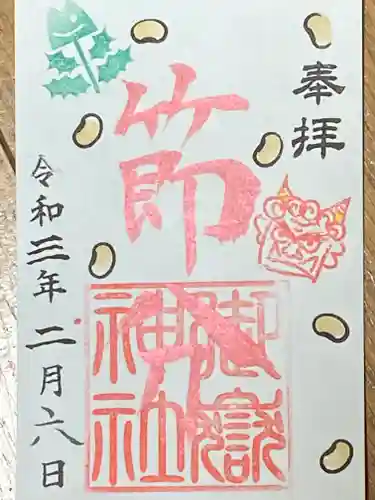 奉拝
節分
御嶽神社
令和三年二月六日